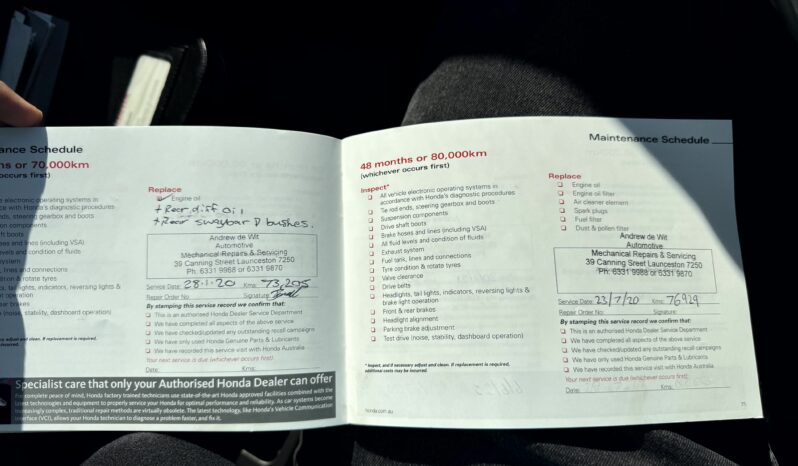 ance Schedule
hs or 70,000km
occurs first)
e electronic operating systems in
ce with Honda's diagnostic procedures
ends, steering gearbox and boots
on components
aft boots
oses and lines (including VSA)
evels and condition of fluids
system
, lines and connections
dition & rotate tyres
earance
s, tail lights, indicators, reversing lights &
t operation
ear brakes
(noise, stability, dashboard operation)
Replace
Engine oil
+ Rear diff oil
+ Rear swaybar D bushes.
Andrew de Wit
Automotive
Mechanical Repairs & Servicing
39 Canning Street Launceston 7250
Ph: 6331 9988 or 6331 9870
Service Date: 28-1-20 Kms: 73,205
Repair Order No Signature:
By stamping this service record we confirm that:
This is an authorised Honda Dealer Service Department
We have completed all aspects of the above service
We have checked/updated any outstanding recall campaigns
We have only used Honda Genuine Parts & Lubricants
We have recorded this service visit with Honda Australia
Your next service is due (whichever occurs first)
Date: Kms:
ry adjust and clean. If replacement is required,
incurred.
Specialist care that only your Authorised Honda Dealer can offer
For complete peace of mind, Honda factory trained technicians use state-of-the-art Honda approved facilities combined with the
latest technologies and equipment to properly service your Honda for optimal performance and reliability. As car systems become
increasingly complex, traditional repair methods are virtually obsolete. The latest technology, like Honda's Vehicle Communication
Interface (VCI), allows your Honda technician to diagnose a problem faster, and fix it.
Maintenance Schedule
48 months or 80,000km
(whichever occurs first)
Inspect*
All vehicle electronic operating systems in
accordance with Honda's diagnostic procedures
Tie rod ends, steering gearbox and boots
Suspension components
Drive shaft boots
Brake hoses and lines (including VSA)
All fluid levels and condition of fluids
Exhaust system
Fuel tank, lines and connections
Tyre condition & rotate tyres
Valve clearance
Drive belts
Headlights, tail lights, indicators, reversing lights &
brake light operation
Front & rear brakes
Headlight alignment
Parking brake adjustment
Test drive (noise, stability, dashboard operation)
* Inspect, and if necessary adjust and clean. If replacement is required,
additional costs may be incurred.
honda.com.au
Replace
Engine oil
Engine oil filter
Air cleaner element
Spark plugs
Fuel filter
Dust & pollen filter
Andrew de Wit
Automotive
Mechanical Repairs & Servicing
39 Canning Street Launceston 7250
Ph: 6331 9988 or 6331 9870
Service Date: 23/7/20 Kms: 76929
Repair Order No: Signature:
By stamping this service record we confirm that:
This is an authorised Honda Dealer Service Department
We have completed all aspects of the above service
We have checked/updated any outstanding recall campaigns
We have only used Honda Genuine Parts & Lubricants
We have recorded this service visit with Honda Australia
Your next service is due (whichever occurs first)
Date: Kms: